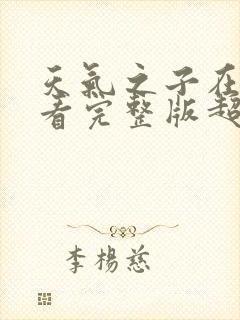 天氣之子在
看完整版超
李楊慈